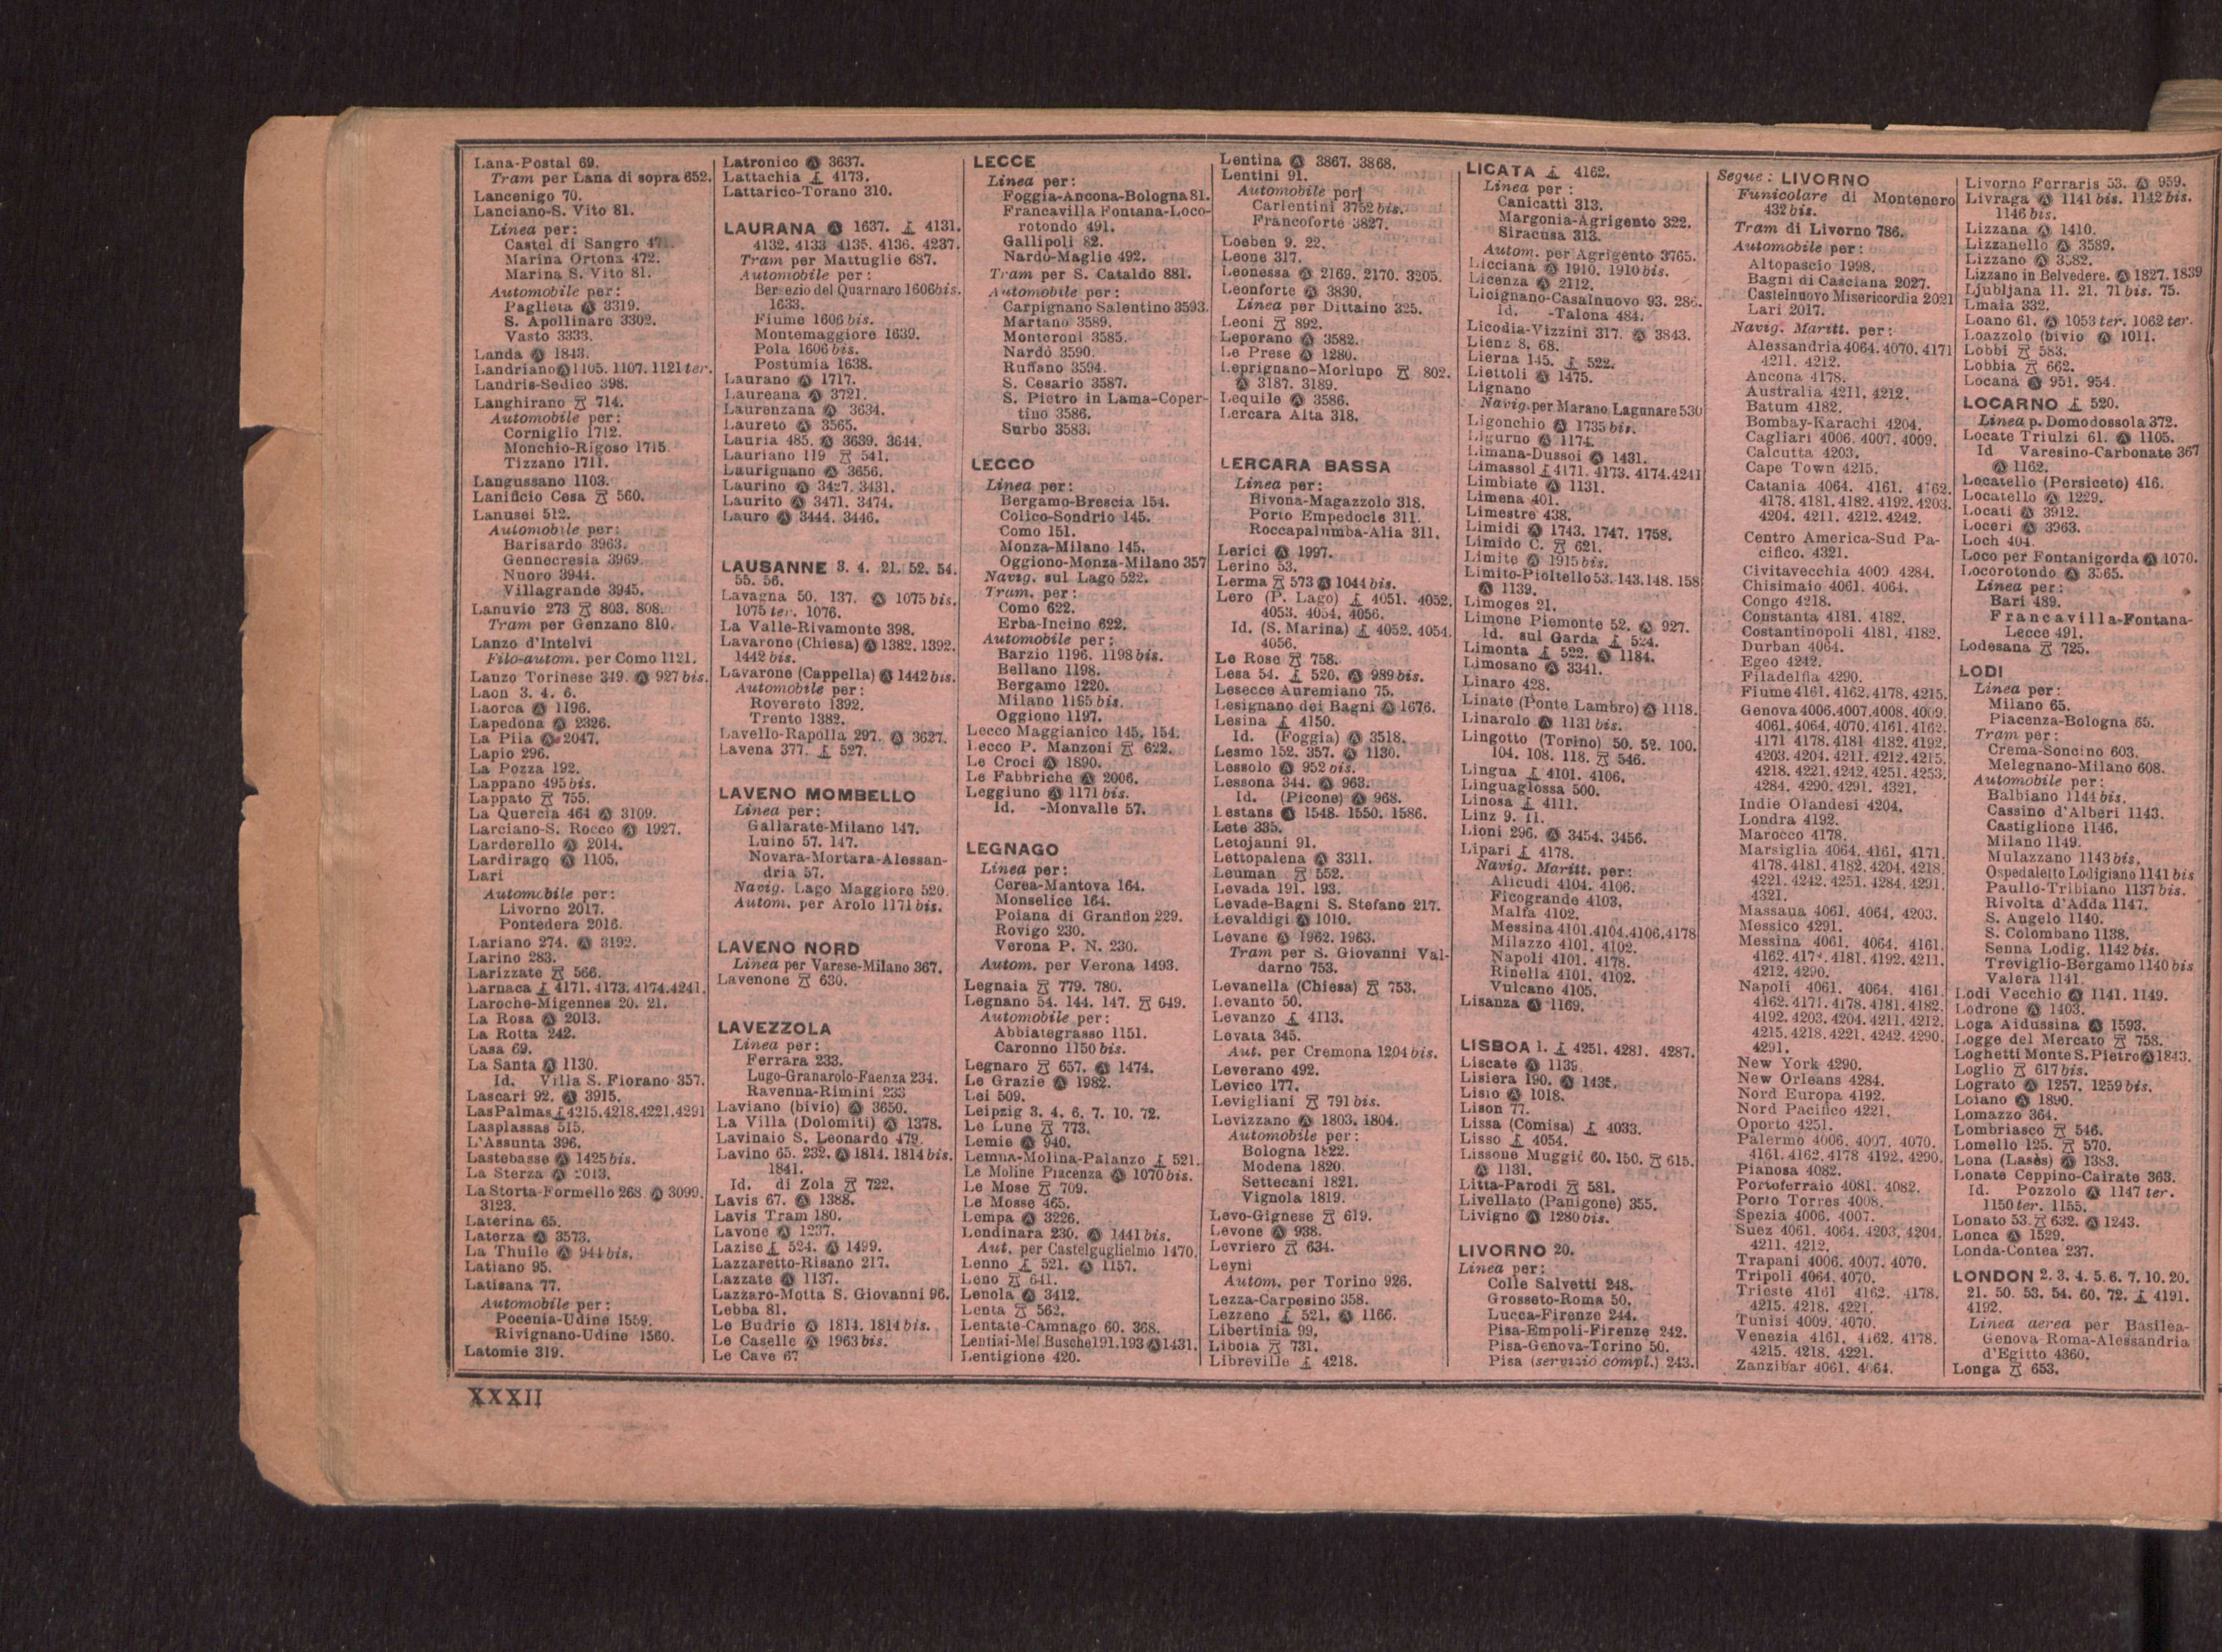 Lana-Postal 69.
Tram per Lana di sopra 652.
Lancenigo 70.
Lanciano-S. Vito 81.
Linea per:
Castel di Sangro
Marina Ortona 472.
Marina S. Vito 81.
Automobile per:
Paglieta Ⓐ 3319.
S. Apollinare 3302.
Vasto 3333.
Landa Ⓐ 1843.
Landriano Ⓐ 1105. 1107. 1121 ter.
Landris-Sedico 398.
Langhirano 714.
Automobile per:
Corniglio 1712.
Monchio-Rigoso 1715
Tizzano 1711.
Langussano 1103.
Lanificio Cesa 560.
Lanusei 512.
Automobile per:
Barisardo 3963.
Gennecresia 3969
Nuoro 3944.
Villagrande 3945.
Lanuvio 273 803. 808.
Tram per Genzano 810.
Lanzo d'Intelvi
Filo-autom. per Como 1121.
Lanzo Torinese 349. Ⓐ 927 bis.
Laon 3. 4. 6.
Laorca Ⓐ 1196.
Lapedona Ⓐ 2326.
La Pila Ⓐ 2047.
Lapio 296.
La Pozza 192.
Lappano 495 bis.
Lappato 755.
La Quercia 464 Ⓐ 3109.
Larciano-S. Rocco Ⓐ 1927.
Larderello Ⓐ 2014.
Lardirago Ⓐ 1105.
Lari
Automobile per:
Livorno 2017.
Pontedera 2016.
Lariano 274. Ⓐ 3192.
Larino 283.
Larizzate 566.
Larnaca 4171. 4173. 4174. 4241.
Laroche-Migennes 20. 21.
La Rosa Ⓐ 2013.
La Rotta 242.
Lasa 69.
La Santa Ⓐ 1130.
Id. Villa S. Fiorano 357.
Lascari 92. Ⓐ 3915.
Las Palmas 4215. 4218. 4221. 4291
Lasplassas 515.
L'Assunta 396.
Lastebasse Ⓐ 1425 bis.
La Sterza Ⓐ 2013.
La Storta-Formello 268. Ⓐ 3099.
3123.
Laterina 65.
Laterza Ⓐ 3573.
La Thuile Ⓐ 944 bis.
Latiano 95.
Latisana 77.
Automobile per:
Pocenia-Udine 1559.
Rivignano-Udine 1560.
Latomie 319.
Latronico Ⓐ 3637.
Lattachia 4173.
Lattarico-Torano 310.
LAURANA Ⓐ 1637. 4131.
4132. 4133 4135. 4136. 4237.
Tram per Mattuglie 687.
Automobile per:
Bersezio del Quarnaro 1606 bis.
1633.
Fiume 1606 bis.
Montemaggiore 1639.
Pola 1606 bis.
Postumia 1638.
Laurano Ⓐ 1717.
Laureana Ⓐ 3721.
Laurenzana Ⓐ 3634.
Laureto Ⓐ 3565.
Lauria 485. Ⓐ 3639. 3644.
Lauriano 119 541.
Laurignano Ⓐ 3656.
Laurino Ⓐ 3427. 3431.
Laurito Ⓐ 3471. 3474.
Lauro Ⓐ 3444. 3446.
LAUSANNE 3. 4. 21. 52. 54.
55. 56.
Lavagna 50. 137. Ⓐ 1075 bis.
1075 ter. 1076.
La Valle-Rivamonte 398.
Lavarone (Chiesa) Ⓐ 1382. 1392.
1442 bis.
Lavarone (Cappella) Ⓐ 1442 bis.
Automobile per:
Rovereto 1392.
Trento 1382.
Lavello-Rapolla 297. Ⓐ 3627.
Lavena 377. 527.
LAVENO MOMBELLO
Linea per:
Gallarate-Milano 147.
Luino 57. 147.
Novara-Mortara-Alessan-
dria 57.
Navig. Lago Maggiore 520.
Autom. per Arolo 1171 bis.
LAVENO NORD
Linea per Varese-Milano 367.
Lavenone 630.
LAVEZZOLA
Linea per:
Ferrara 233.
Lugo-Granarolo-Faenza 234.
Ravenna-Rimini 233
Laviano (bivio) Ⓐ 3650.
La Villa (Dolomiti) Ⓐ 1378.
Lavinaio S. Leonardo 479.
Lavino 65. 232. Ⓐ 1814. 1814 bis.
1841.
Id. di Zola 722.
Lavis 67. Ⓐ 1388.
Lavis Tram 180.
Lavone Ⓐ 1237.
Lazise 524. Ⓐ 1499.
Lazzaretto-Risano 217.
Lazzate Ⓐ 1137.
Lazzaro-Motta S. Giovanni 96.
Lebba 81.
Le Budrie Ⓐ 1814. 1814 bis.
Le Caselle Ⓐ 1963 bis.
Le Cave 67
LECCE
Linea per:
Foggia-Ancona-Bologna 81.
Francavilla Fontana-Loco-
rotondo 491.
Gallipoli 82.
Nardò-Maglie 492.
Tram per S. Cataldo 881.
Automobile per:
Carpignano Salentino 3593.
Martano 3589.
Monteroni 3585.
Nardò 3590.
Ruffano 3594.
S. Cesario 3587.
S. Pietro in Lama-Coper-
tino 3586.
Surbo 3583.
LECCO
Linea per:
Bergamo-Brescia 154.
Colico-Sondrio 145.
Como 151.
Monza-Milano 145.
Oggiono-Monza-Milano 357
Navig. sul Lago 522.
Tram. per:
Como 622.
Erba-Incino 622.
Automobile per:
Barzio 1196. 1198 bis.
Bellano 1198.
Bergamo 1220.
Milano 1195 bis.
Oggiono 1197.
Lecco Maggianico 145. 154.
Lecco P. Manzoni 622.
Le Croci Ⓐ 1890.
Le Fabbriche Ⓐ 2006.
Leggiuno Ⓐ 1171 bis.
Id. -Monvalle 57.
LEGNAGO
Linea per:
Cerea-Mantova 164.
Monselice 164.
Poiana di Granfion 229.
Rovigo 230.
Verona P. N. 230.
Autom. per Verona 1493.
Legnaia 779. 780.
Legnano 54. 144. 147. 649.
Automobile per:
Abbiategrasso 1151.
Caronno 1150 bis.
Legnaro 657. Ⓐ 1474.
Le Grazie Ⓐ 1982.
Lei 509.
Leipzig 3. 4. 6. 7. 10. 72.
Le Lune 773.
Lemie Ⓐ 940.
Lemna-Molina-Palanzo 521.
Le Moline Piacenza Ⓐ 1070 bis.
Le Mose 709.
Le Mosse 465.
Lempa Ⓐ 3226.
Lendinara 230. Ⓐ 1441 bis.
Aut. per Castelguglielmo 1470.
Lenno 521. Ⓐ 1157.
Leno 641.
Lenola Ⓐ 3412.
Lenta 562.
Lentate-Camnago 60. 368.
Lentiai-Mel Busche 191. 193 Ⓐ 1431.
Lentigione 420.
Lentina Ⓐ 3867. 3868.
Lentini 91.
Automobile per
Carlentini 3752 bis.
Francoforte 3827.
Loeben 9. 22.
Leone 317.
Leonessa Ⓐ 2169. 2170. 3205.
Leonforte Ⓐ 3830.
Linea per Dittaino 325.
Leoni 892.
Leporano Ⓐ 3582.
Le Prese Ⓐ 1280.
Leprignano-Morlupo 802.
Ⓐ 3187. 3189.
Lequile Ⓐ 3586.
Lercara Alta 318.
LERCARA BASSA
Linea per:
Bivona-Magazzolo 318.
Porto Empedocle 311.
Roccapalumba-Alia 311.
Lerici Ⓐ 1997.
Lerino 53.
Lerma 573 Ⓐ 1044 bis.
Lero (P. Lago) 4051. 4052.
4053. 4054. 4056.
Id. (S. Marina) 4052. 4054.
4056.
Le Rose 758.
Lesa 54. 520. Ⓐ 989 bis.
Lesecce Auremiano 75.
Lesignano dei Bagni Ⓐ 1676.
Lesina 4150.
Id. (Foggia) Ⓐ 3518.
Lesmo 152. 357. Ⓐ 1130.
Lessolo Ⓐ 952 bis.
Lessona 344. Ⓐ 963.
Id. (Picone) Ⓐ 968.
Lestans Ⓐ 1548. 1550. 1586.
Lete 335.
Letojanni 91.
Lettopalena Ⓐ 3311.
Leuman 552.
Levada 191. 193.
Levade-Bagni S. Stefano 217.
Levaldigi Ⓐ 1010.
Levane Ⓐ 1962. 1963.
Tram per S. Giovanni Val-
darno 753.
Levanella (Chiesa) 753.
Levanto 50.
Levanzo 4113.
Levata 345.
Aut. per Cremona 1204 bis.
Leverano 492.
Levico 177.
Levigliani 791 bis.
Levizzano Ⓐ 1803. 1804.
Automobile per:
Bologna 1822.
Modena 1820.
Settecani 1821.
Vignola 1819.
Levo-Gignese 619.
Levone Ⓐ 938.
Levriero 634.
Leynì
Autom. per Torino 926.
Lezza-Carpesino 358.
Lezzeno 521. Ⓐ 1166.
Libertinia 99.
Libola 731.
Libreville 4218.
LICATA 4162.
Linea per:
Canicattì 313.
Margonia-Agrigento 322.
Siracusa 313.
Autom. per Agrigento 3765.
Licciana Ⓐ 1910. 1910 bis.
Licenza Ⓐ 2112.
Licignano-Casalnuovo 93. 286.
Id. -Talona 484.
Licodia-Vizzini 317. Ⓐ 3843.
Lienz 8. 68.
Lierna 145. 522.
Liettoli Ⓐ 1475.
Lignano
Navig. per Marano Lagunare 530
Ligonchio Ⓐ 1735 bis.
Ligurno Ⓐ 1174.
Limana-Dussoi Ⓐ 1431.
Limassol 4171. 4173. 4174. 4241
Limbiate Ⓐ 1131.
Limena 401.
Limestre 438.
Limidi Ⓐ 1743. 1747. 1758.
Limido C. 621.
Limite Ⓐ 1915 bis.
Limito-Pioltello 53. 143. 148. 158
Ⓐ 1139.
Limoges 21.
Limone Piemonte 52. Ⓐ 927.
Id. sul Garda 524.
Limonta 522. Ⓐ 1184.
Limosano Ⓐ 3341.
Linaro 428.
Linate (Ponte Lambro) Ⓐ 1118.
Linarolo Ⓐ 1131 bis.
Lingotto (Torino) 50. 52. 100.
104. 108. 118. 546.
Lingua 4101. 4106.
Linguaglossa 500.
Linosa 4111.
Linz 9. 11.
Lioni 296. Ⓐ 3454. 3456.
Lipari 4178.
Navig. Maritt. per:
Alicudi 4104. 4106.
Ficogrande 4103.
Malfa 4102.
Messina 4101. 4104. 4106. 4178
Milazzo 4101. 4102.
Napoli 4101. 4178.
Rinella 4101. 4102.
Vulcano 4105.
Lisanza Ⓐ 1169.
LISBOA 1. 4251. 4281. 4287.
Liscate Ⓐ 1139
Lisiera 190. Ⓐ
Lisio Ⓐ 1018.
Lison 77.
Lissa (Comisa) 4033.
Lisso 4054.
Lissone Muggiò 60. 150. 615.
Ⓐ 1131.
Litta-Parodi 581.
Livellato (Panigone) 355.
Livigno Ⓐ 1280 bis.
LIVORNO 20.
Linea per:
Colle Salvetti 248.
Grosseto-Roma 50.
Lucca-Firenze 244.
Pisa-Empoli-Firenze 242.
Pisa-Genova-Torino 50.
Pisa (servizio compl.) 243.
Segue: LIVORNO
Funicolare di Montenero
432 bis.
Tram di Livorno 786.
Automobile per:
Altopascio 1998.
Bagni di Casciana 2027.
Castelnuovo Misericordia 2021
Lari 2017.
Navig. Maritt. per:
Alessandria 4064. 4070. 4171
4211. 4212.
Ancona 4178.
Australia 4211. 4212.
Batum 4182.
Bombay-Karachi 4204.
Cagliari 4006. 4007. 4009.
Calcutta 4203.
Cape Town 4215.
Catania 4064. 4161. 4162.
4178. 4181. 4182. 4192. 4203.
4204. 4211. 4212. 4242.
Centro America-Sud Pa-
cifico. 4321.
Civitavecchia 4009. 4284.
Chisimaio 4061. 4064.
Congo 4218.
Constanta 4181. 4182.
Costantinopoli 4181. 4182.
Durban 4064.
Egeo 4242.
Filadelfia 4290.
Fiume 4161. 4162. 4178. 4215.
Genova 4006. 4007. 4008. 4009.
4061. 4064. 4070. 4161. 4162.
4171 4178. 4181 4182. 4192.
4203. 4204. 4211. 4212. 4215.
4218. 4221. 4242. 4251. 4253.
4284. 4290. 4291. 4321.
Indie Olandesi 4204.
Londra 4192.
Marocco 4178.
Marsiglia 4064. 4161. 4171.
4178. 4181. 4182. 4204. 4218.
4221. 4242. 4251. 4284. 4291.
4321.
Massaua 4061. 4064. 4203.
Messico 4291.
Messina 4061. 4064. 4161.
4162. 4181. 4192. 4211.
4212. 4290.
Napoli 4061. 4064. 4161
4162. 4171. 4178. 4181. 4182.
4192. 4203. 4204. 4211. 4212.
4215. 4218. 4221. 4242. 4290.
4291.
New York 4290.
New Orleans 4284.
Nord Europa 4192.
Nord Pacifico 4221.
Oporto 4251.
Palermo 4006. 4007. 4070.
4161. 4162. 4178 4192. 4290.
Pianosa 4082.
Portoferraio 4081. 4082.
Porto Torres 4008.
Spezia 4006. 4007.
Suez 4061. 4064. 4203. 4204.
4211. 4212.
Trapani 4006. 4007. 4070.
Tripoli 4064. 4070.
Trieste 4161 4162. 4178.
4215. 4218. 4221.
Tunisi 4009. 4070.
Venezia 4161. 4162. 4178.
4215. 4218. 4221.
Zanzibar 4061. 4064.
Livorno Ferraris 53. Ⓐ 959.
Livraga Ⓐ 1141 bis. 1142 bis.
1146 bis.
Lizzana Ⓐ 1410.
Lizzanello Ⓐ 3589.
Lizzano Ⓐ 3582.
Lizzano in Belvedere. Ⓐ 1827. 1839
Ljubljana 11. 21. 71 bis. 75.
Lmaia 332.
Loano 61. Ⓐ 1053 ter. 1062 ter.
Loazzolo (bivio Ⓐ 1011.
Lobbi 583.
Lobbia 662.
Locana Ⓐ 951. 954.
LOCARNO 520.
Linea p. Domodossola 372.
Locate Triulzi 61. Ⓐ 1105.
Id Varesino-Carbonate 367
Ⓐ 1162.
Locatello (Persiceto) 416.
Locatello Ⓐ 1229.
Locati Ⓐ 3912.
Loceri Ⓐ 3963.
Loch 404.
Loco per Fontanigorda Ⓐ 1070.
Locorotondo Ⓐ 3565.
Linea per:
Bari 489.
Francavilla-Fontana-
Lecce 491.
Lodesana 725.
LODI
Linea per:
Milano 65.
Piacenza-Bologna 65.
Tram per:
Crema-Soncino 603.
Melegnano-Milano 608.
Automobile per:
Balbiano 1144 bis.
Cassino d'Alberi 1143.
Castiglione 1146.
Milano 1149.
Mulazzano 1143 bis.
Ospedaletto Lodigiano 1141 bis
Paullo-Tribiano 1137 bis.
Rivolta d'Adda 1147.
S. Angelo 1140.
S. Colombano 1138.
Senna Lodig. 1142 bis.
Treviglio-Bergamo 1140 bis
Valera 1141.
Lodi Vecchio Ⓐ 1141. 1149.
Lodrone Ⓐ 1403.
Loga Aidussina Ⓐ 1593.
Logge del Mercato 758.
Loghetti Monte S. Pietro Ⓐ 1843.
Loglio 617 bis.
Lograto Ⓐ 1257. 1259 bis.
Loiano Ⓐ 1890.
Lomazzo 364.
Lombriasco 546.
Lomello 125. 570.
Lona (Lasès) Ⓐ 1383.
Lonate Ceppino-Cairate 363.
Id. Pozzolo Ⓐ 1147 ter.
1150 ter. 1155.
Lonato 53. 632. Ⓐ 1243.
Lonca Ⓐ 1529.
Londa-Contea 237.
LONDON 2. 3. 4. 5. 6. 7. 10. 20.
21. 50. 53. 54. 60. 72. 4191.
4192.
Linea aerea per Basilea-
Genova-Roma-Alessandria
d'Egitto 4360.
Longa 653.
XXXII